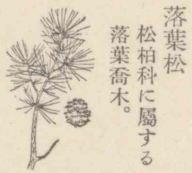 落葉松
松柏科に屬する
落葉喬木。